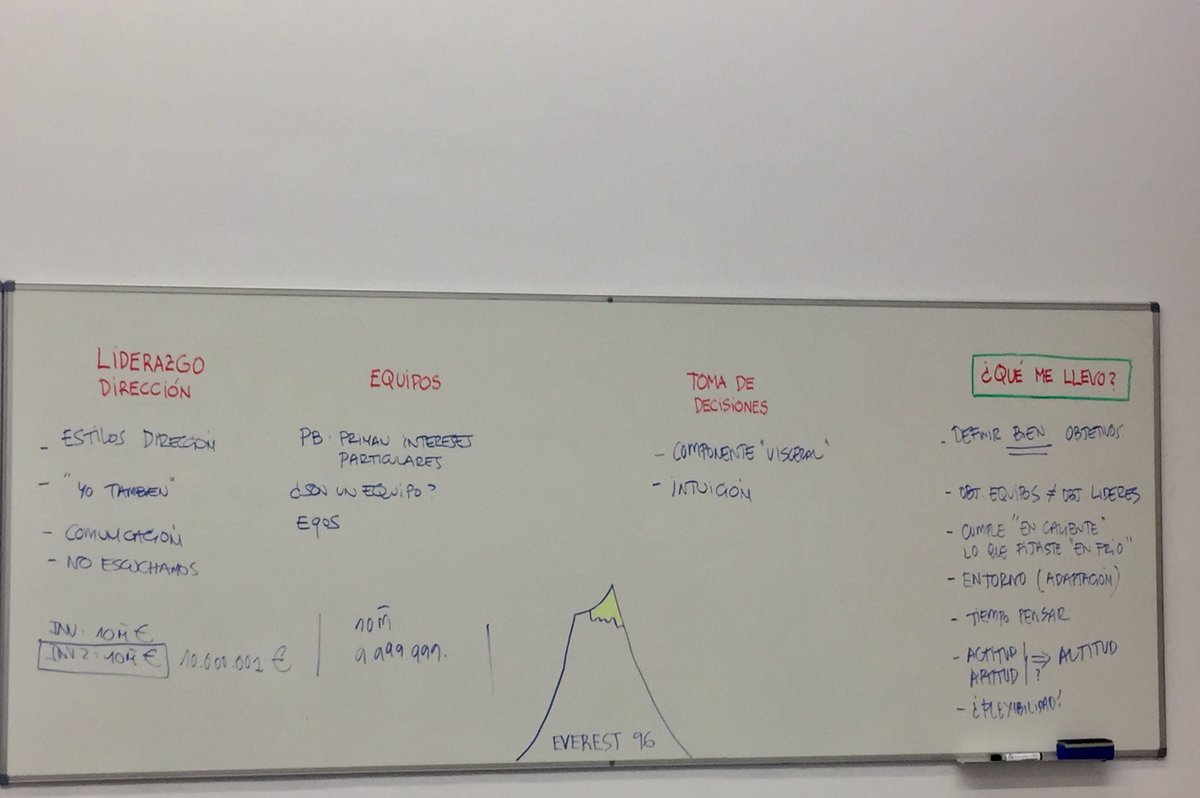 LIDERAZGO
DIRECCIÓN
- ESTILOS DIRECCIÓN
- "YO TAMBIEN"
- COMUNICACIÓN
- NO ESCUCHAMOS
INV: 10M €
INV2: 10M € 10.000.001 €
EQUIPOS
PB: PRIMAN INTERESES
PARTICULARES
¿SON UN EQUIPO?
EGOS
10M
9.999.999.
TOMA DE
DECISIONES
- COMPONENTE "VISCERAL"
- INTUICIÓN
EVEREST 96
¿QUÉ ME LLEVO?
- DEFINIR BIEN OBJETIVOS
- OBJ. EQUIPOS ≠ OBJ LIDERES
- CUMPLE "EN CALIENTE"
LO QUE FIJASTE "EN FRIO"
- ENTORNO (ADAPTACIÓN)
- TIEMPO PENSAR
- ACTITUD ⇒ ALTITUD
APTITUD ?
- ¿FLEXIBILIDAD?